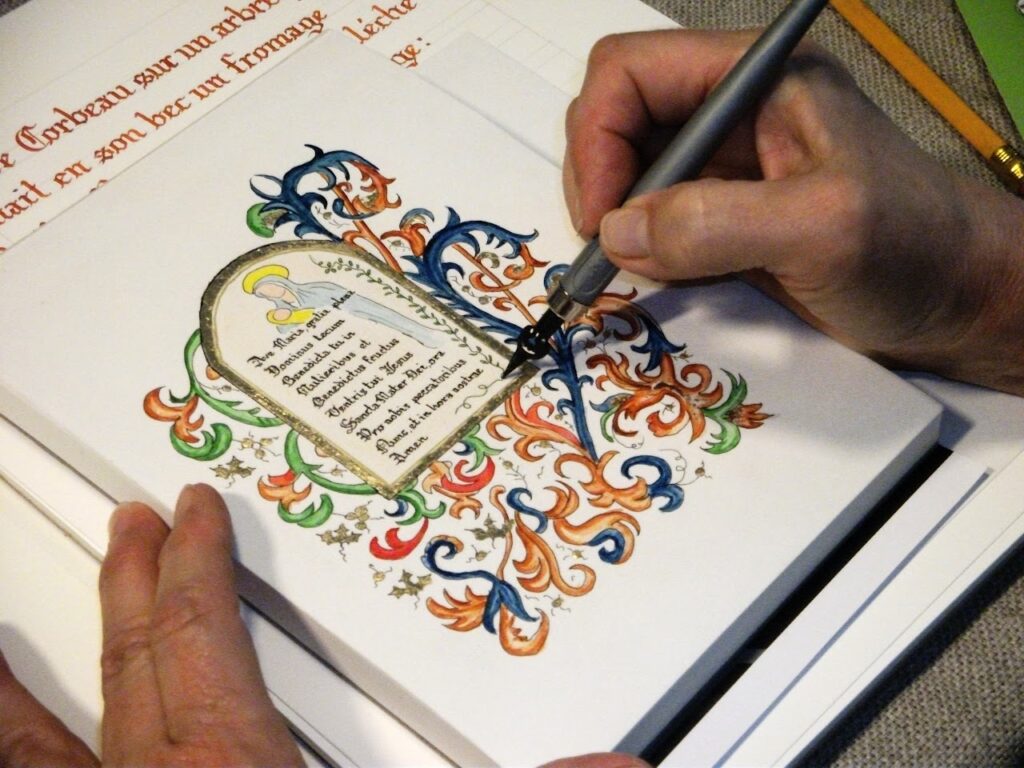 e Corbeau sur un arbre
nait en son bec un fromage
léché
ge:
Ave Maria gratia plena
Dominus tecum
Benedicta tu in
Mulieribus et
Benedictus fructus
Ventris tui Jesus
Sancta Mater Dei ora
Pro nobis peccatoribus
Nunc, et in hora
Amen